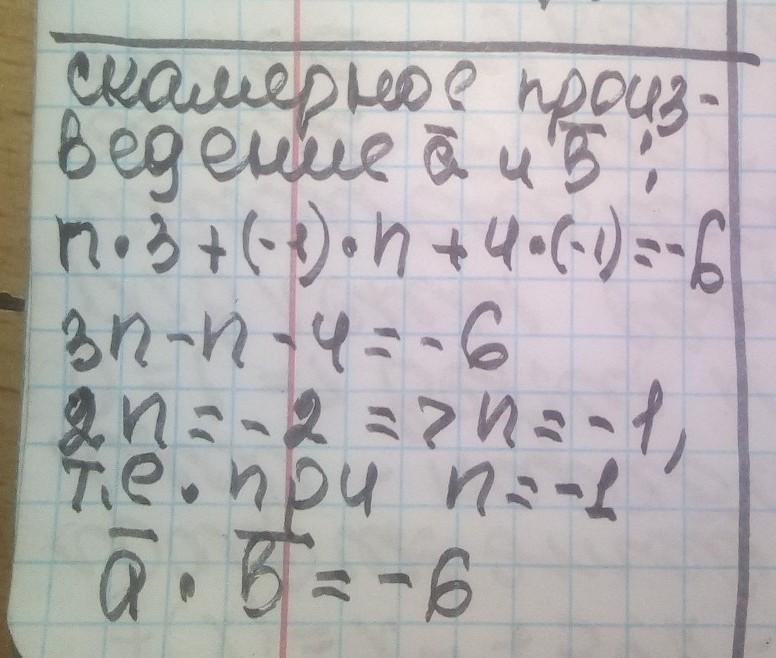 скалярное произ-
ведение a̅ и b̅:
n·3+(-1)·n+4·(-1)=-6
3n-n-4=-6
2n=-2=>n=-1,
т.е. при n=-1
a̅·b̅=-6